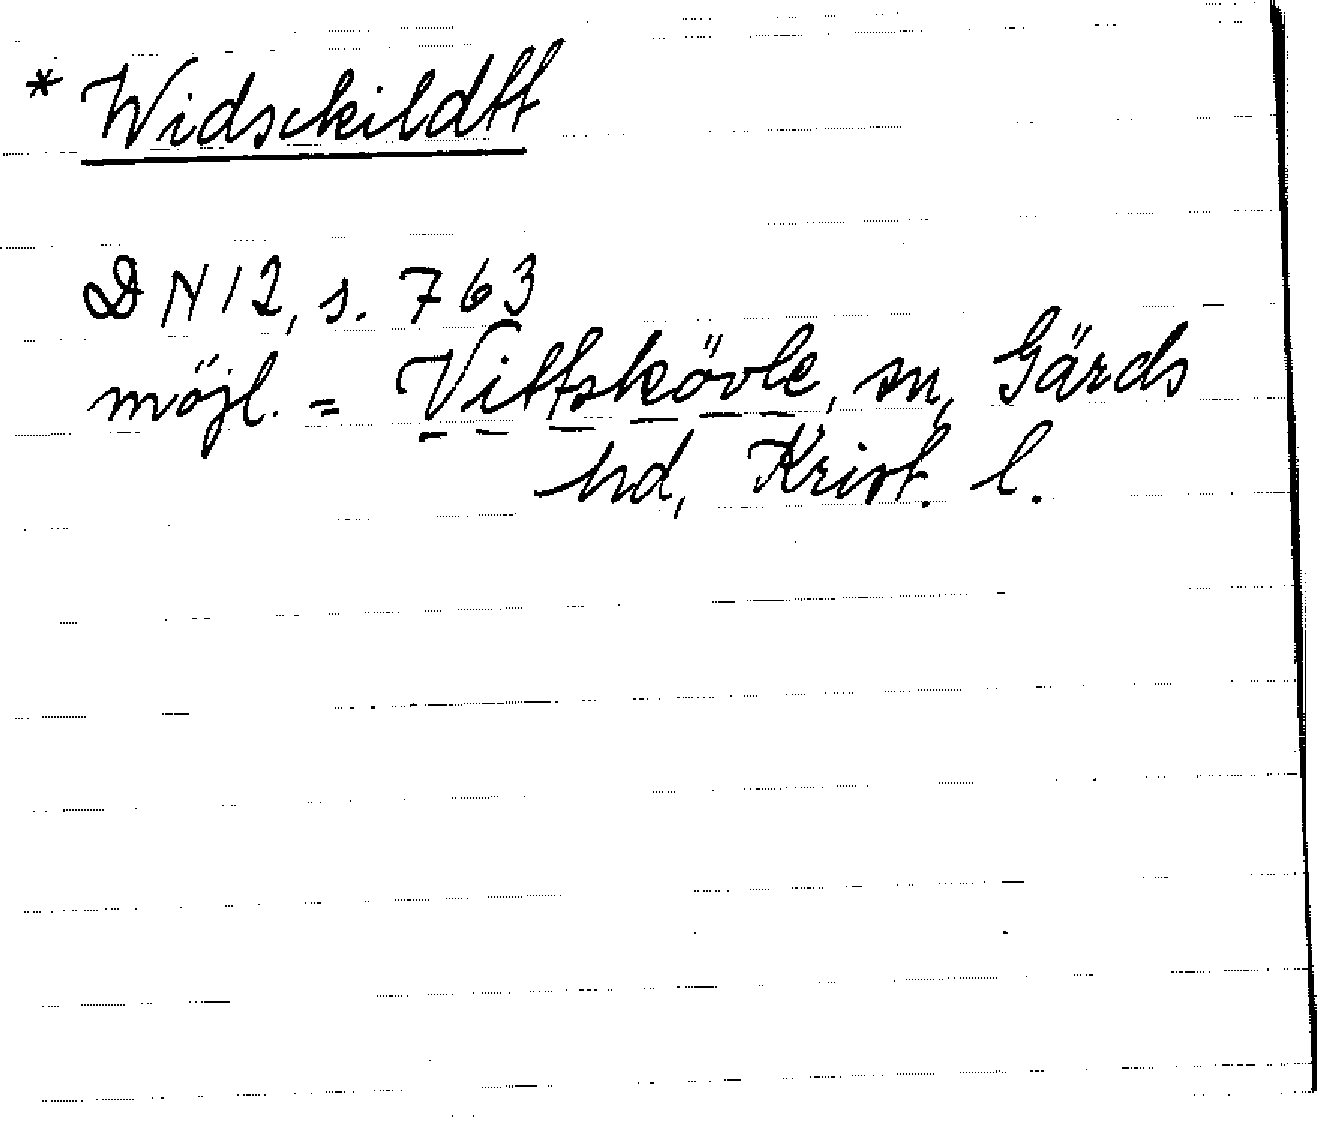 * Widschildtt
DN 12, s. 763
möjl. = Vittskövle, sn, Gärds
hd, Krist. l.